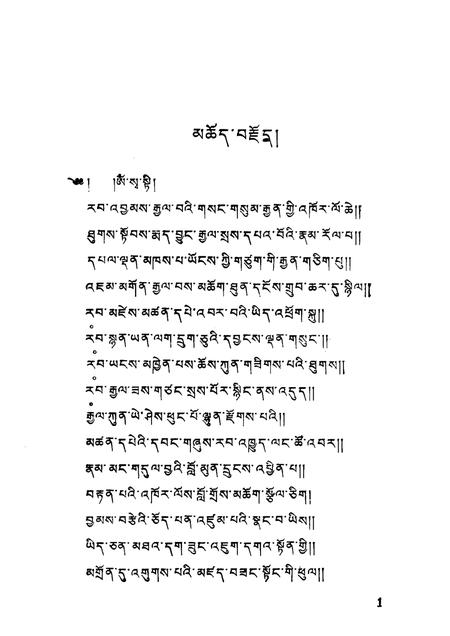 མཆོད་བརྗོད།
༄༅། །ཨོཾ་སྭ་སྟི།
རབ་འབྱམས་རྒྱལ་བའི་གསང་གསུམ་རྒྱན་གྱི་འཁོར་ལོ་ཆེ།།
ཐུགས་སྟོབས་རྨད་བྱུང་རྒྱལ་སྲས་དཔའ་བོའི་རྣམ་རོལ་བ།།
དཔལ་ལྡན་མཁས་པ་ཡོངས་ཀྱི་གཙུག་གི་རྒྱན་གཅིག་པུ།།
འཇམ་མགོན་རྒྱལ་བས་མཆོག་ཐུན་དངོས་གྲུབ་ཆར་དུ་སྙིལ།།
རབ་མཛེས་མཚན་དཔེ་འབར་བའི་ཡིད་འཕྲོག་སྐུ།།
རབ་སྙན་ཡན་ལག་དྲུག་ཅུའི་དབྱངས་ལྡན་གསུང་།།
རབ་ཡངས་མཁྱེན་པས་ཆོས་ཀུན་གཟིགས་པའི་ཐུགས།།
རབ་རྒྱལ་ཟས་གཙང་སྲས་པོར་སྙིང་ནས་འདུད།།
རྒྱལ་ཀུན་ཡེ་ཤེས་ཕུང་པོ་ལྷུན་རྫོགས་པའི།།
མཚན་དཔེའི་དབང་གཞུས་རབ་འཁྱུད་ལང་ཚོ་འབར།།
རྣམ་མང་གདུལ་བྱའི་བློ་མུན་དྲུངས་འབྱིན་པ།།
བརྟན་པའི་འཁོར་ལོས་བློ་གྲོས་མཆོག་སྩོལ་ཅིག།
བྱམས་བརྩེའི་ཅོད་པན་འཛུམ་པའི་སྣང་བ་ཡིས།།
ཡིད་ཅན་མཐའ་དག་ཟུང་འཇུག་དགའ་སྟོན་གྱི།།
མགྲོན་དུ་འགུགས་པའི་མཛད་བཟང་སྟོང་གི་ཕུལ།།
1